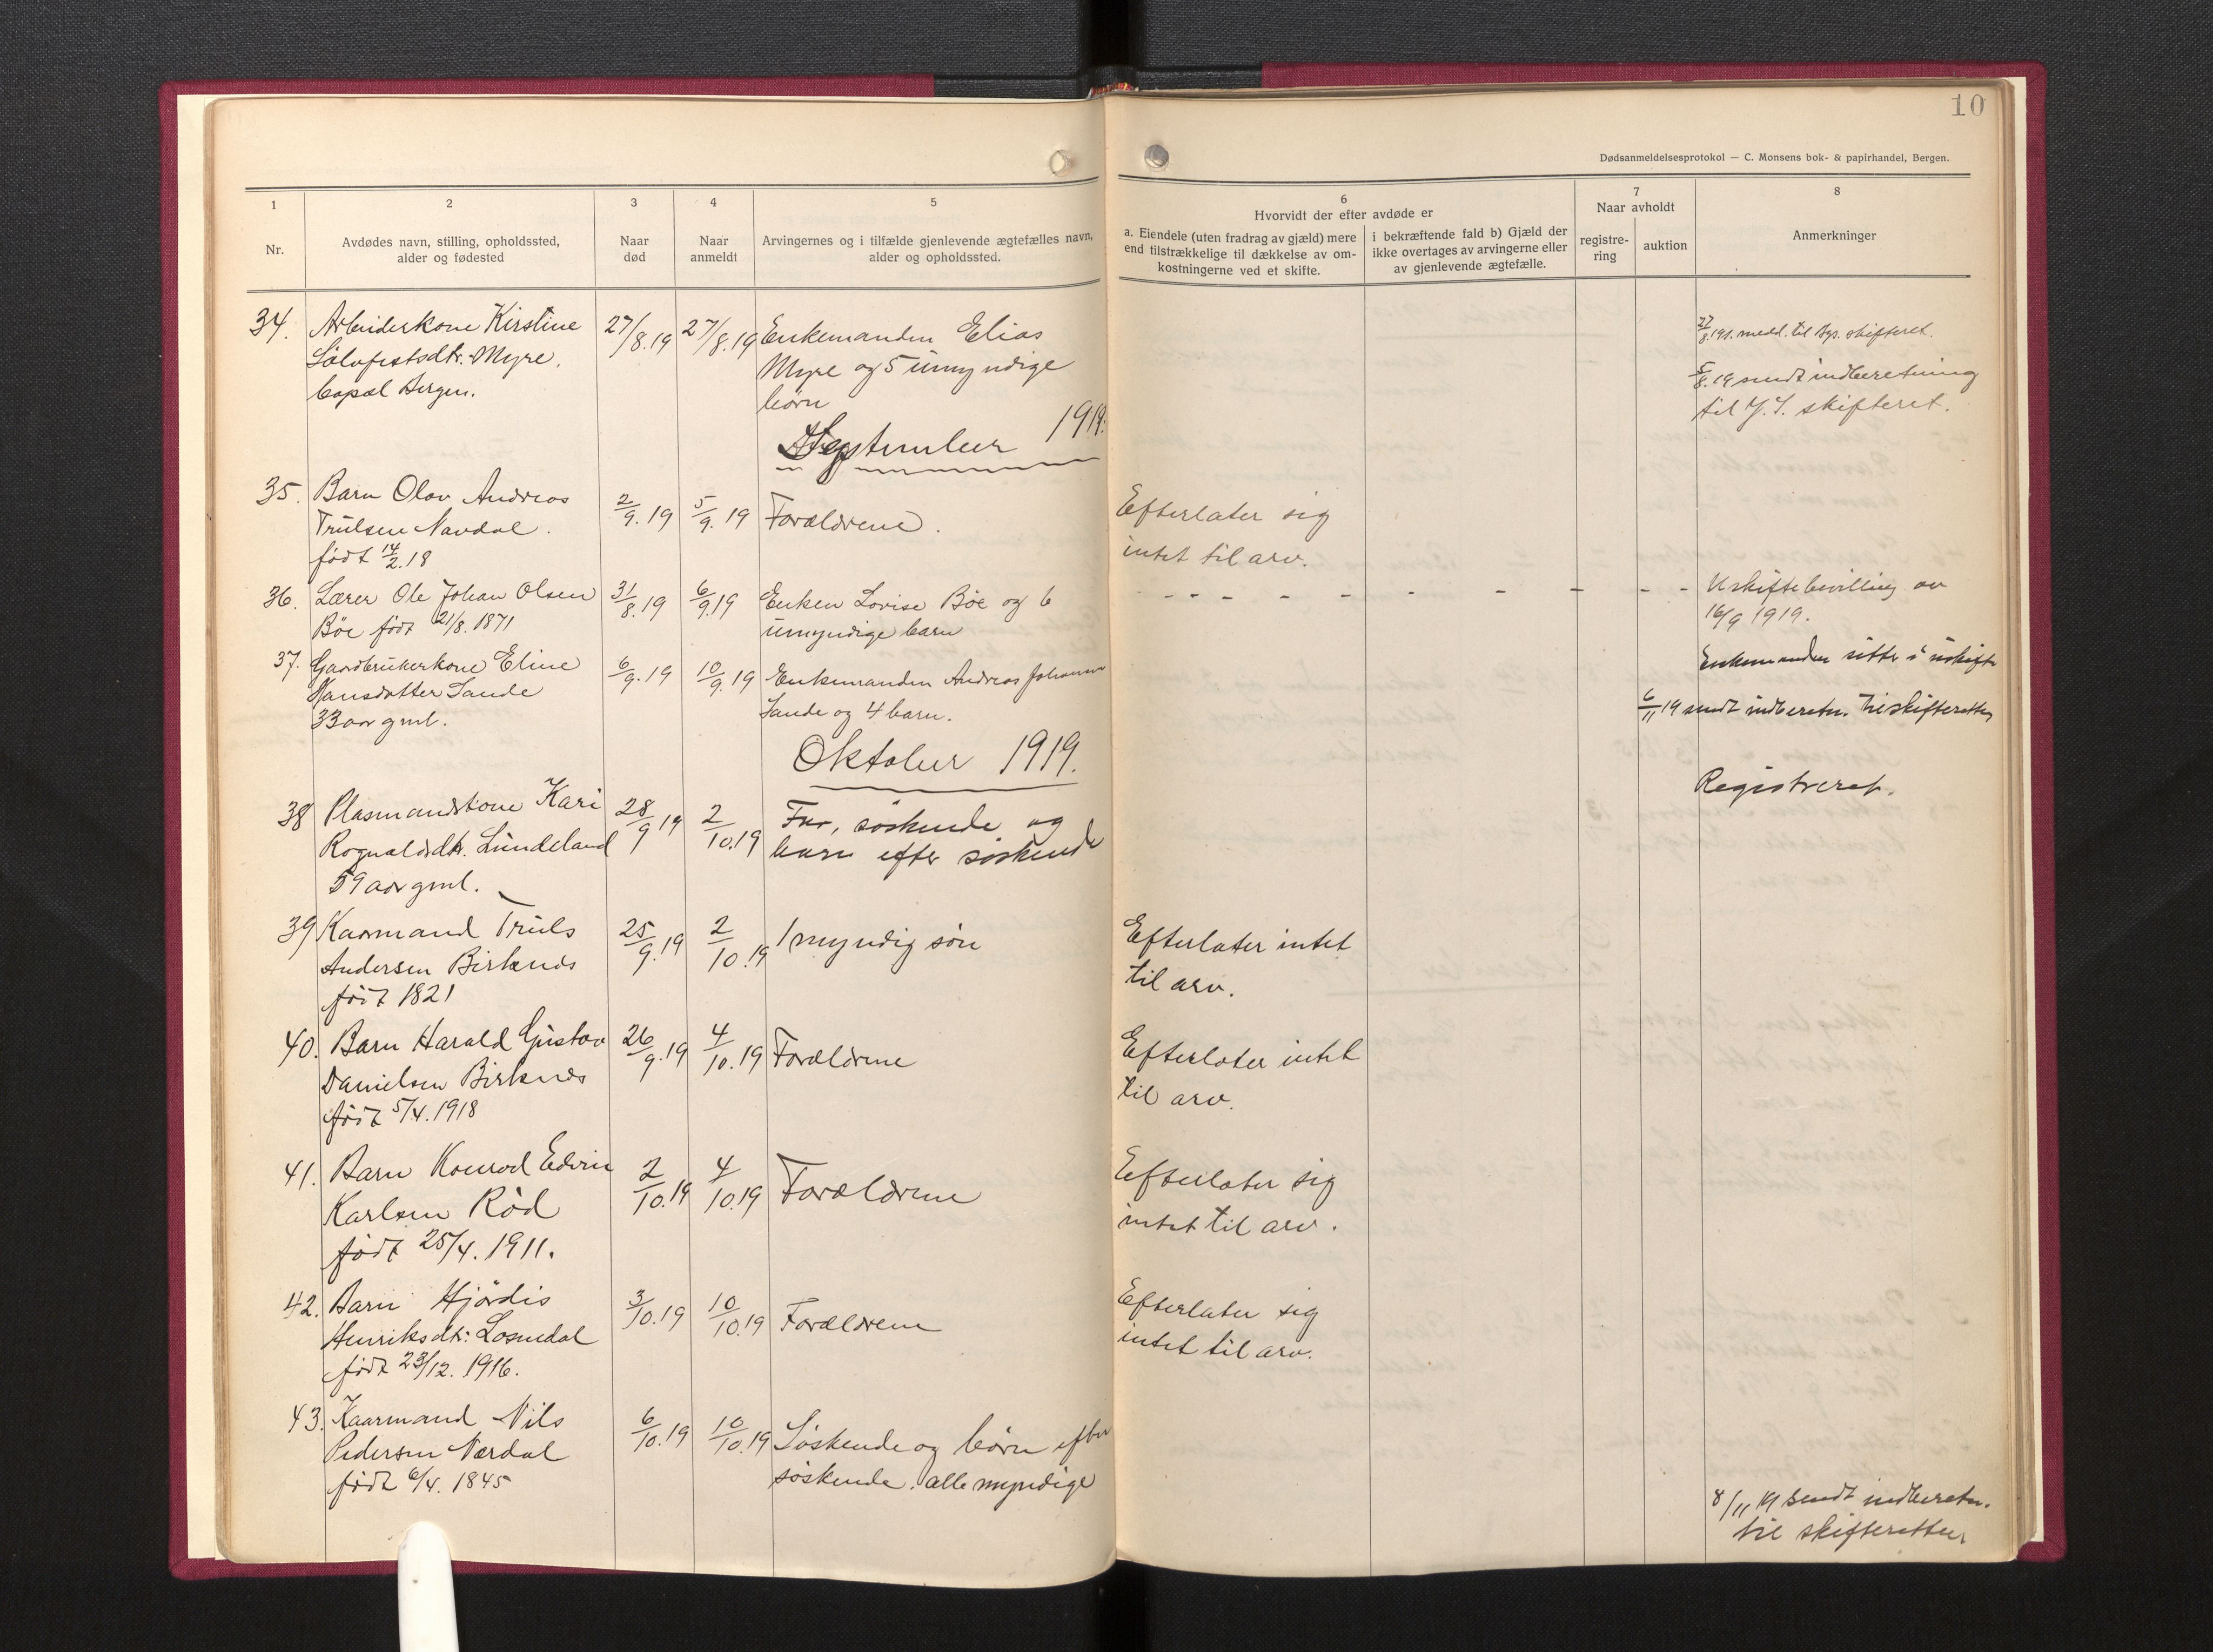 10
Dødsanmeldelsesprotokol — C. Monsens bok- & papirhandel, Bergen.
1
Nr.
2
Avdødes navn, stilling, opholdssted,
alder og fødested
3
Naar
død
4
Naar
anmeldt
5
Arvingernes og i tilfælde gjenlevende ægtefælles navn,
alder og opholdssted.
6
Hvorvidt der efter avdøde er
a. Eiendele (uten fradrag av gjæld) mere
end tilstrækkelige til dækkelse av om-
kostningerne ved et skifte.
i bekræftende fald b) Gjæld der
ikke overtages av arvingerne eller
av gjenlevende ægtefælle.
7
Naar avholdt
registre-
ring
auktion
8
Anmerkninger
34. Arbeiderkone Kirstine 27/8.19 27/8.19 Enkemanden Elias
Myre og 5 umyndige
børn
Myre.
Bergen.
27/8.19 medd. til skifteret.
5/8.19 sendt indberetning
til skifteret.
September 1919.
35. Barn Olov Andreas 2/9.19 5/9.19 Forældrene. Efterlater sig
Trulsen Navdal. intet til arv.
født 14/2.18
36. Lærer Ole Johan Olsen 31/8.19 6/9.19 Enken Lovise Böe og 6 - - - - - - - - - - Uskiftebevilling av
Böe født 21/8.1871 umyndige barn 16/9 1919.
37. Gaardbrukerkone Eline 6/9.19 10/9.19 Enkemanden Andreas Johansen Enkemanden sitter i uskifte
Hansdatter Sande Sande og 4 barn. 6/11 19 sendt indberetn. til skifteretten
33 aar gml.
Oktober 1919.
38 Plasmandskone Kari 28/9 19 2/10.19 Far, søskende og Registreret.
Rognaldsdtr. Lundeland barn efter søskende
59 aar gml.
39 Kaarmand Truls 25/9.19 2/10.19 1 myndig søn Efterlater intet
Andersen Birknes til arv.
født 1821
40. Barn Harald Gustav 26/9.19 4/10.19 Forældrene Efterlater intet
Danielsen Birknes til arv.
født 5/4.1918
41. Barn Konrad Edvin 2/10.19 4/10.19 Forældrene Efterlater sig
Karlsen Röd intet til arv.
født 25/4.1911.
42. Barn Hjördis 3/10.19 10/10.19 Forældrene Efterlater sig
Henriksdtr: Losnedal intet til arv.
født 23/12.1916.
43. Kaarmand Nils 6/10.19 10/10.19 Søskende og börn efter
Pedersen Nærdal søskende. alle myndige
født 6/4.1845
8/11 19 sendt indberetn.
til skifteretten